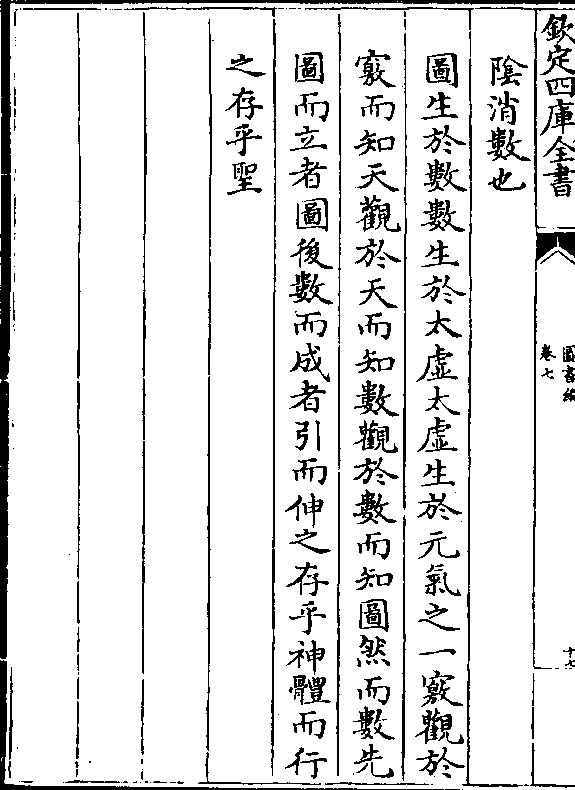 欽定四庫全書
圖書編
卷七
十七
陰消數也
圖生於數數生於太虛太虛生於元氣之一竅觀於
竅而知天觀於天而知數觀於數而知圖然而數先
圖而立者圖後數而成者引而伸之存乎神體而行
之存乎聖